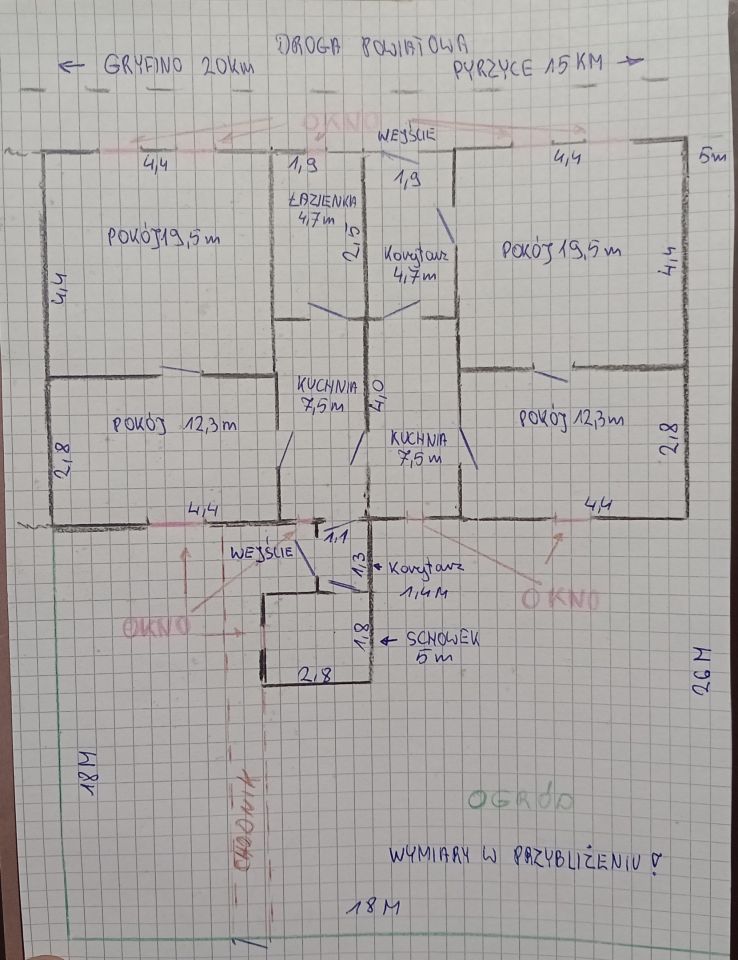 DROGA POWIATOWA
← GRYFINO 20Km
PYRZYCE 15 KM →
OKNO
WEJŚCIE
4,4
1,9
1,9
4,4
5m
ŁAZIENKA
4,7m
2,5
POKÓJ 19,5m
Korytarz
4,7m
POKÓJ 19,5m
4,4
4,4
KUCHNIA
7,5m
4,0
POKÓJ 12,3m
KUCHNIA
7,5m
POKÓJ 12,3m
2,8
2,8
4,4
4,4
1,1
WEJŚCIE
1,3
Korytarz
1,4M
OKNO
OKNO
1,8
SCHOWEK
5m
2,8
26M
18M
CHODNIK
OGRÓD
WYMIARY W PRZYBLIŻENIU!
18M